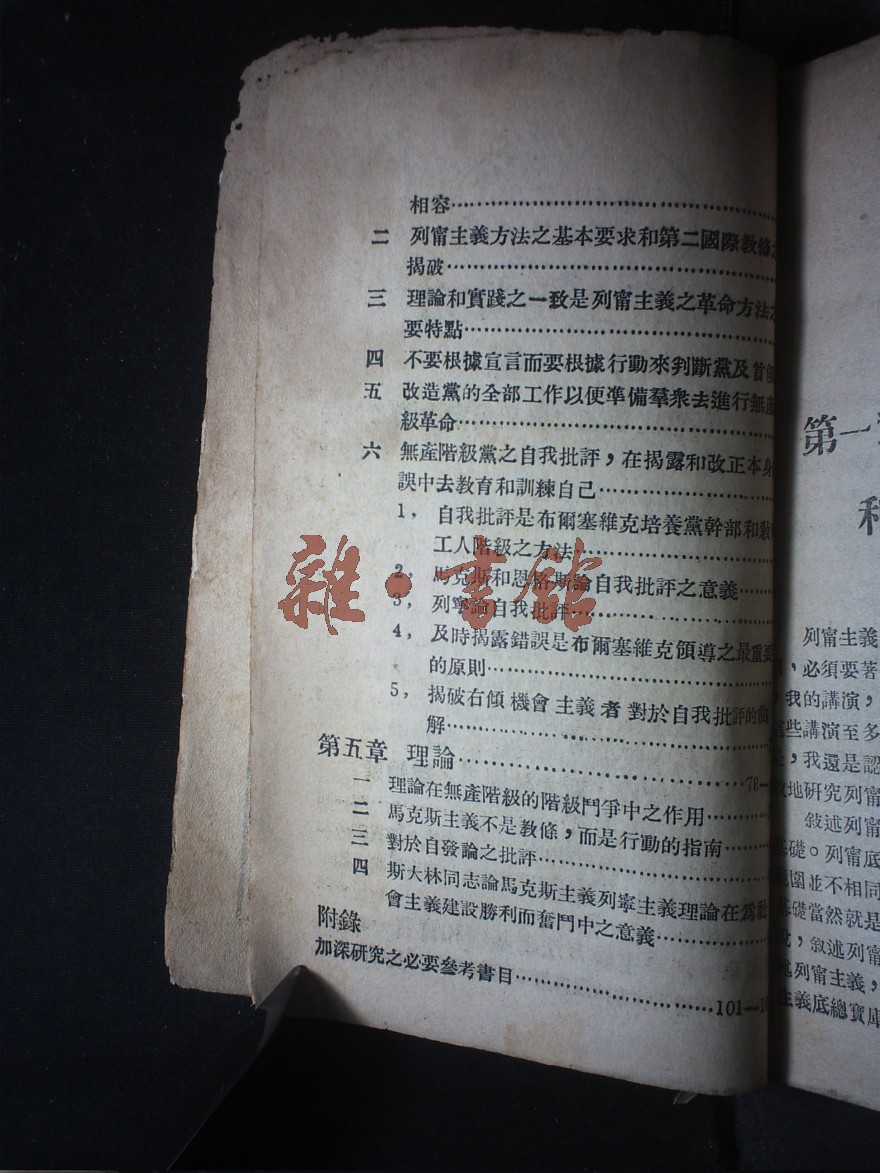 相容
二 列甯主義方法之基本要求和第二國際教條之
揭破
三 理論和實踐之一致是列甯主義之革命方法之
要特點
四 不要根據宣言而要根據行動來判斷黨及首領
五 改造黨的全部工作以便準備羣衆去進行無產
級革命
六 無產階級黨之自我批評，在揭露和改正本身
誤中去教育和訓練自己
1, 自我批評是布爾塞維克培養黨幹部和教育
工人階級之方法
2, 馬克斯和恩格斯論自我批評之意義
3, 列寧論自我批評
4, 及時揭露錯誤是布爾塞維克領導之最重要
的原則
5, 揭破右傾機會主義者對於自我批評的曲
解
第五章 理論 78—
一 理論在無產階級的階級鬥爭中之作用
二 馬克斯主義不是教條，而是行動的指南
三 對於自發論之批評
四 斯大林同志論馬克斯主義列寧主義理論在爲社
會主義建設勝利而奮鬥中之意義
附錄
加深研究之必要參考書目 101—1
雜·書館
第一
列甯主義
，必須要著
我的講演，
些講演至多
，我還是認
地研究列甯
敍述列甯
礎。列甯底
圍並不相同
礎當然就是
，敍述列甯
述列甯主義，
主義底總寶庫